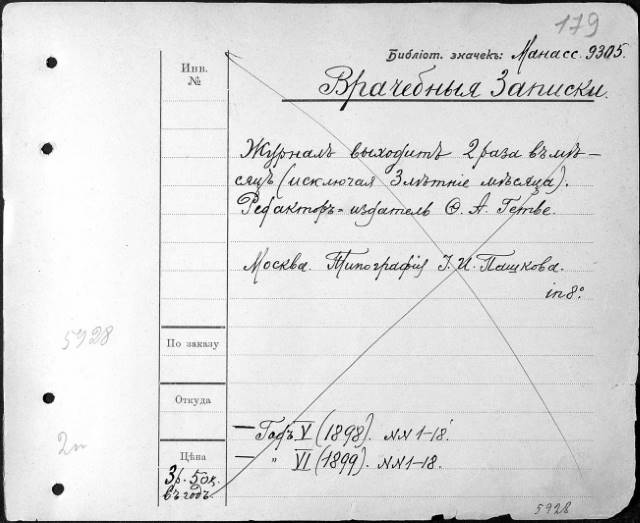 179
Библіот. значекъ: Манасс. 9305.
Врачебныя Записки.
Инв.
№
Журналъ выходитъ 2 раза въ мѣ-
сяцъ (исключая 3 лѣтніе мѣсяца).
Редакторъ-издатель Ѳ. А. Гетье.
Москва. Типографія І. И. Пашкова.
in 8°.
5928
По заказу
Откуда
2п
— Годъ V (1898). NN 1-18.
— " VI (1899). NN 1-18.
Цѣна
3 р. 50 к.
въ годъ.
5928